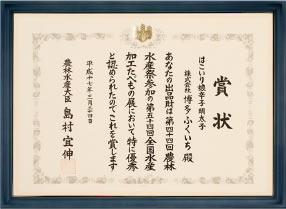 賞状
はこいり娘辛子明太子
株式会社 博多ふくいち 殿
あなたの出品財は第四十四回農林
水産祭参加の第五十四回全国水産
加工たべもの展において特に優秀
と認められたのでこれを賞します
平成十七年三月二十四日
農林水産大臣 島村宜伸